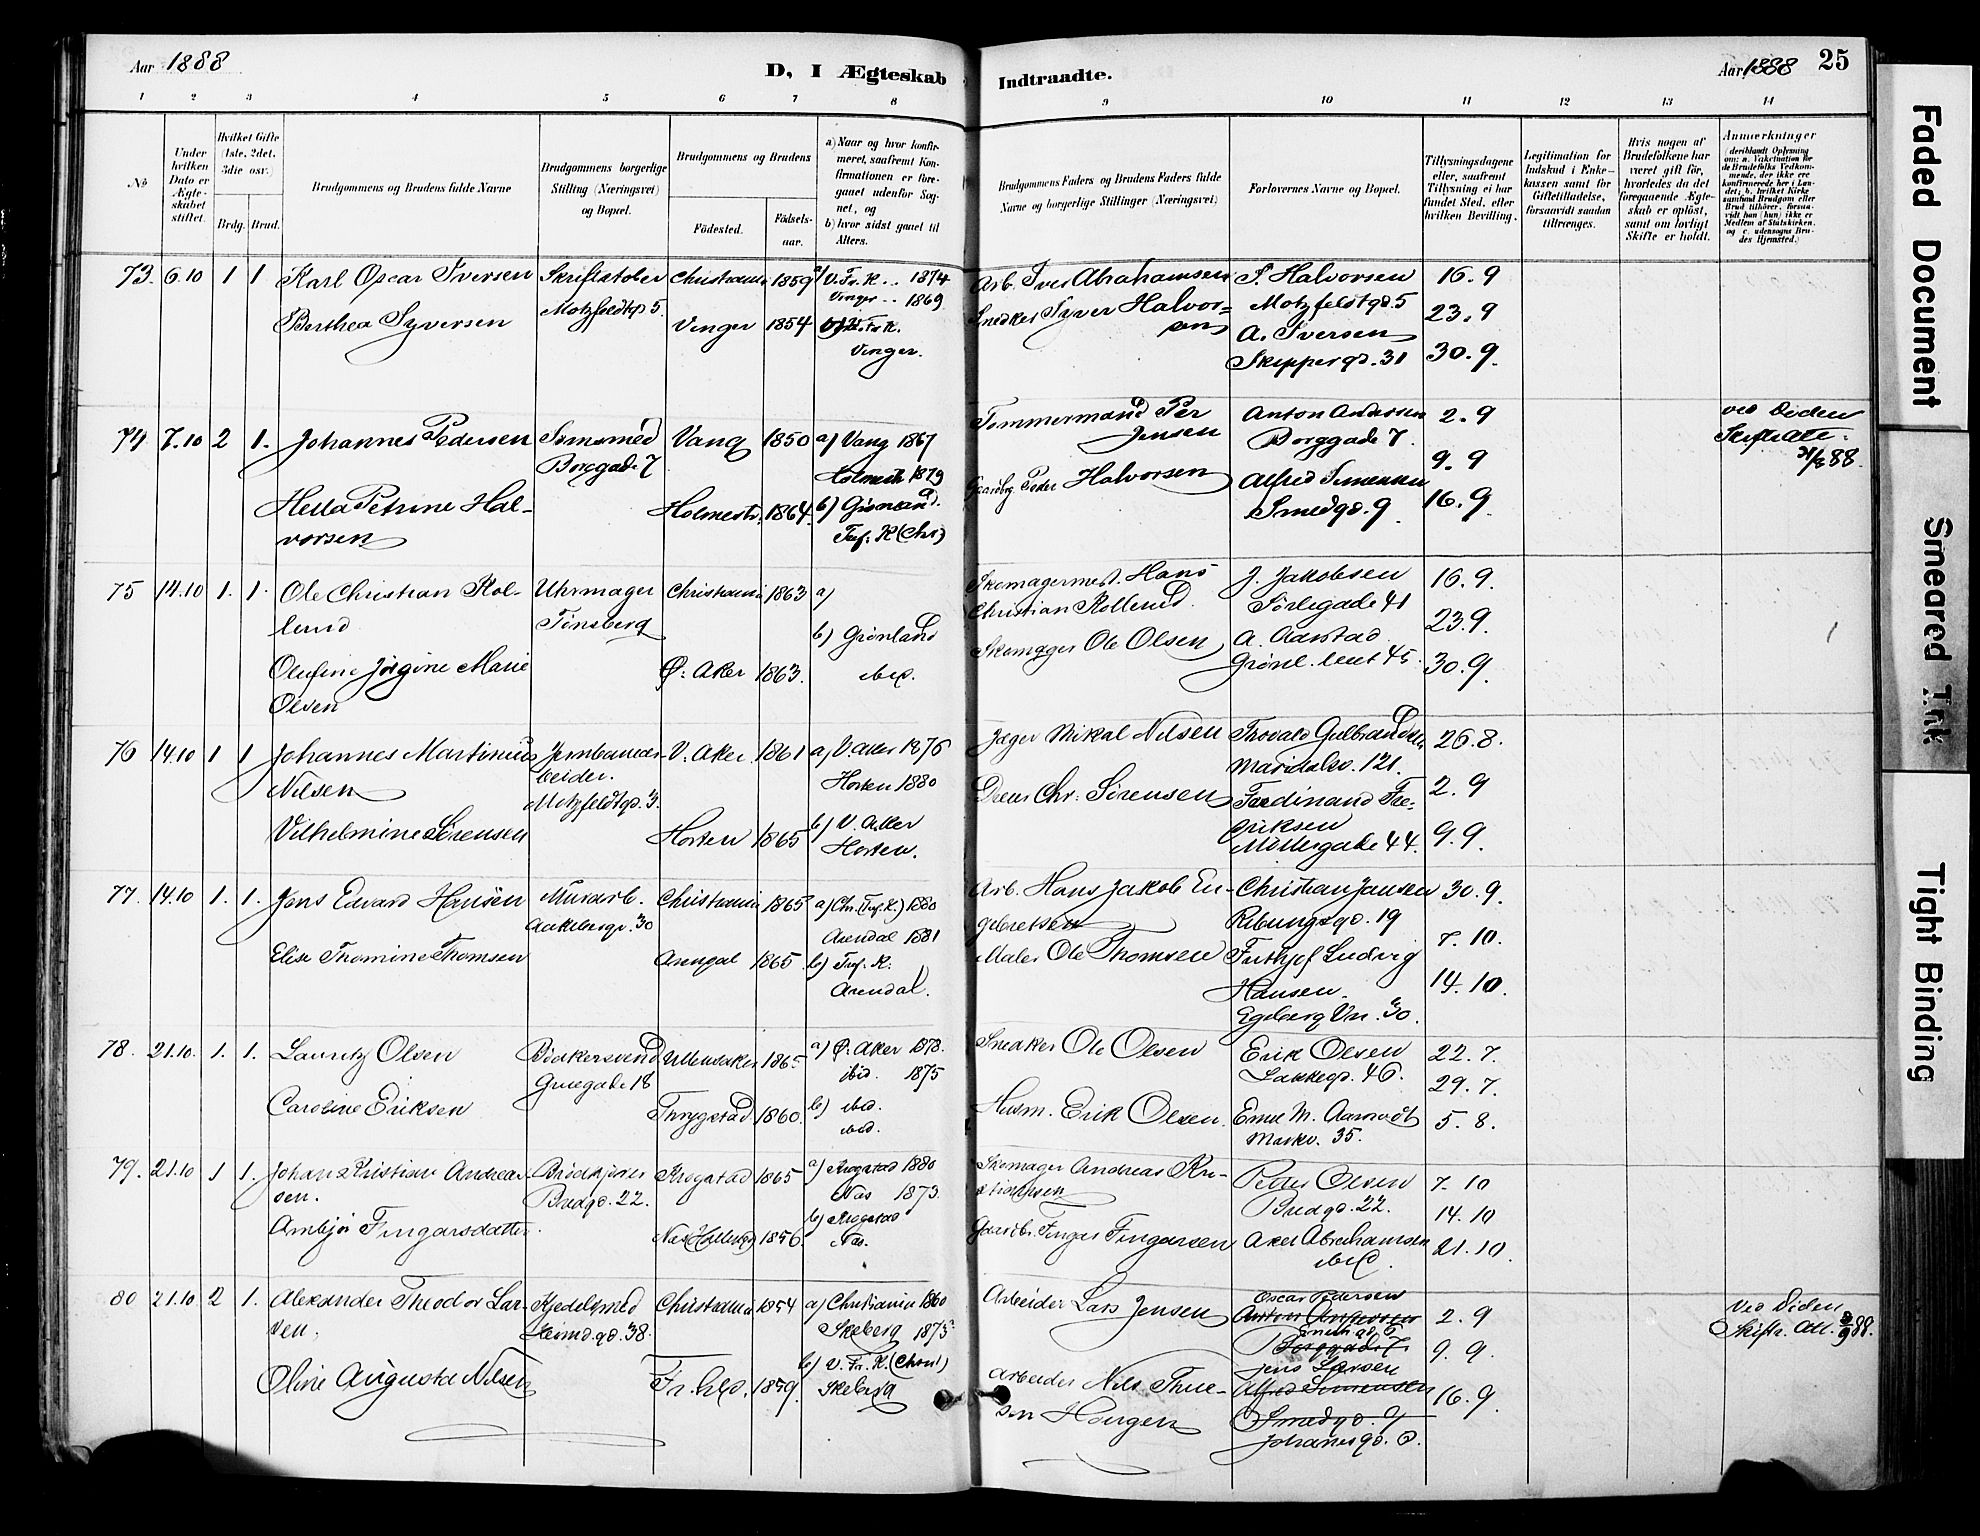 Aar 1888
D, I Ægteskab Indtraadte.
Aar 1888 25
1 2 3 4 5 6 7 8 9 10 11 12 13 14
No
Under hvilken Dato er Ægteskabet stiftet.
Hvilket Gifte (1ste, 2det, 3die osv.)
Brdg. Brud.
Brudgommens og Brudens fulde Navne
Brudgommens borgerlige Stilling (Næringsvei) og Bopæl.
Brudgommens og Brudens
Födested.
Födselsaar.
a) Naar og hvor konfirmeret, saafremt Konfirmationen er foregaaet udenfor Sognet, og
b) hvor sidst gaaet til Alters.
Brudgommens Faders og Brudens Faders fulde Navne og borgerlige Stillinger (Næringsvei)
Forlovernes Navne og Bopæl.
Tillysningsdagene eller, saafremt Tillysning ei har fundet Sted, efter hvilken Bevilling.
Legitimation for Indskud i Enkekassen samt for Giftetilladelse, forsaavidt saadan tiltrænges.
Hvis nogen af Brudefolkene har været gift før, hvorledes da det foregaaende Ægteskab er oplöst, samt om lovligt Skifte er holdt.
Anmærkninger
73. 6.10 1 1 Karl Oscar Iversen
Berthea Syversen
Motzfeldtgd 5.
Christiania 1859
Vinger 1854
a) V. Fr. K. .. 1874
Vinger .. 1869
Vinger.
Arb. Iver Abrahamsen
Snedker Syver Halvorsen
Halvorsen
Motzfeldtgd 5
A. Iversen
Skippergd. 31
16.9
23.9
30.9.
74 7.10 2 1. Johannes Pedersen
Hella Petrine Halvorsen
Borggade 7
Vang 1850
Holmestr. 1864.
a) Vang 1867
Holmestr 1879
b) Grönland.
Tuf. K (Chr)
Tømmermand Per Jensen
Gaardbr Peder Halvorsen
Anton Andersen
Borggade 7.
Alfred Simensen
Smedgd. 9.
2.9
9.9
16.9.
88.
75 14.10 1. 1. Ole Christian Rollund
Olufine Jörgine Marie Olsen
Uhrmager
Tönsberg
Christiania 1863
Ø. Aker 1863.
a)
b) Grönland
ibid.
Skomagermest. Hans Christian Rollund.
Skomager Ole Olsen
J. Jakobsen
Sörlegade 41
A. Aarstad
Grönl. leret 45.
16.9.
23.9.
30.9.
76 14.10 1 1 Johannes Martinius Nilsen
Vilhelmine Sörensen
Jernbanearbeider.
Motzfeldtgd. 3.
V. Aker 1861
Horten 1865
a) V. Aker 1876
Horten 1880
b) V. Aker
Horten.
Jæger Mikal Nilsen
Chr. Sörensen
Thorvald Gulbrandsen
Maridalsv. 121.
Ferdinand Fredriksen
Möllergade 44.
26.8.
2.9
9.9.
77. 14.10 1. 1. Jens Edvard Hansen
Elise Thomine Thomsen
Murarb.
Aakebergv. 30
Christiania 1865
Arendal 1865.
a) Chr. (Tuf. K.) 1880
Arendal 1881
b) Tuf. K.
Arendal.
Arb. Hans Jakob Engebretsen
Maler Ole Thomsen
Christian Jansen
Ribungsgd. 19
Frithjof Ludvig Hansen.
Egeberg Vn. 30.
30.9.
7.10.
14.10.
78. 21.10. 1. 1. Lauritz Olsen
Caroline Eriksen
Bödkersvend
Grucgade 18
Ullensaker 1865
Trygstad 1860.
a) Ø. Aker 1878.
ibid. 1875
b) ibid.
ibid.
Snedker Ole Olsen
Husm. Erik Olsen.
Erik Olsen
Lakkegd. 46.
Markv. 35.
22.7.
29.7.
5.8.
79. 21.10 1 1. Johan Kristian Andreassen.
Ambjör Fingarsdatter.
Bredgd. 22.
Krogstad 1865
Næs (Hallingd) 1856.
a) Krogstad 1880
Næs 1873.
b) Krogstad
Næs.
Skomager Andreas Kristiansen
Gaardbr. Fingar Fingarsen
Petter Olsen
Bredgd. 22.
Axel Abrahamsen
ibid.
7.10
14.10
21.10.
80 21.10 2 1. Alexander Theodor Larsen.
Oline Augusta Nilsen
Kjedelsmed
Heimdgd. 38.
Christiania 1854
Fr.hld. 1859.
a) Christiania 1860
Skeberg 1873
b) V. Fr. K. (Chra)
Skeberg
Arbeider Lars Jensen
Arbeider Nils Thuesen Haugen
Oscar Pedersen
Anton Andersen
Borggade 7.
Jens Larsen
Alfred Simensen
Smedgd. 9
Johannesgd. 6.
2.9
9.9.
16.9.
Ved Siden
Skiftr. Att. 3/9 88.
Faded Document
Smeared Ink
Tight Binding